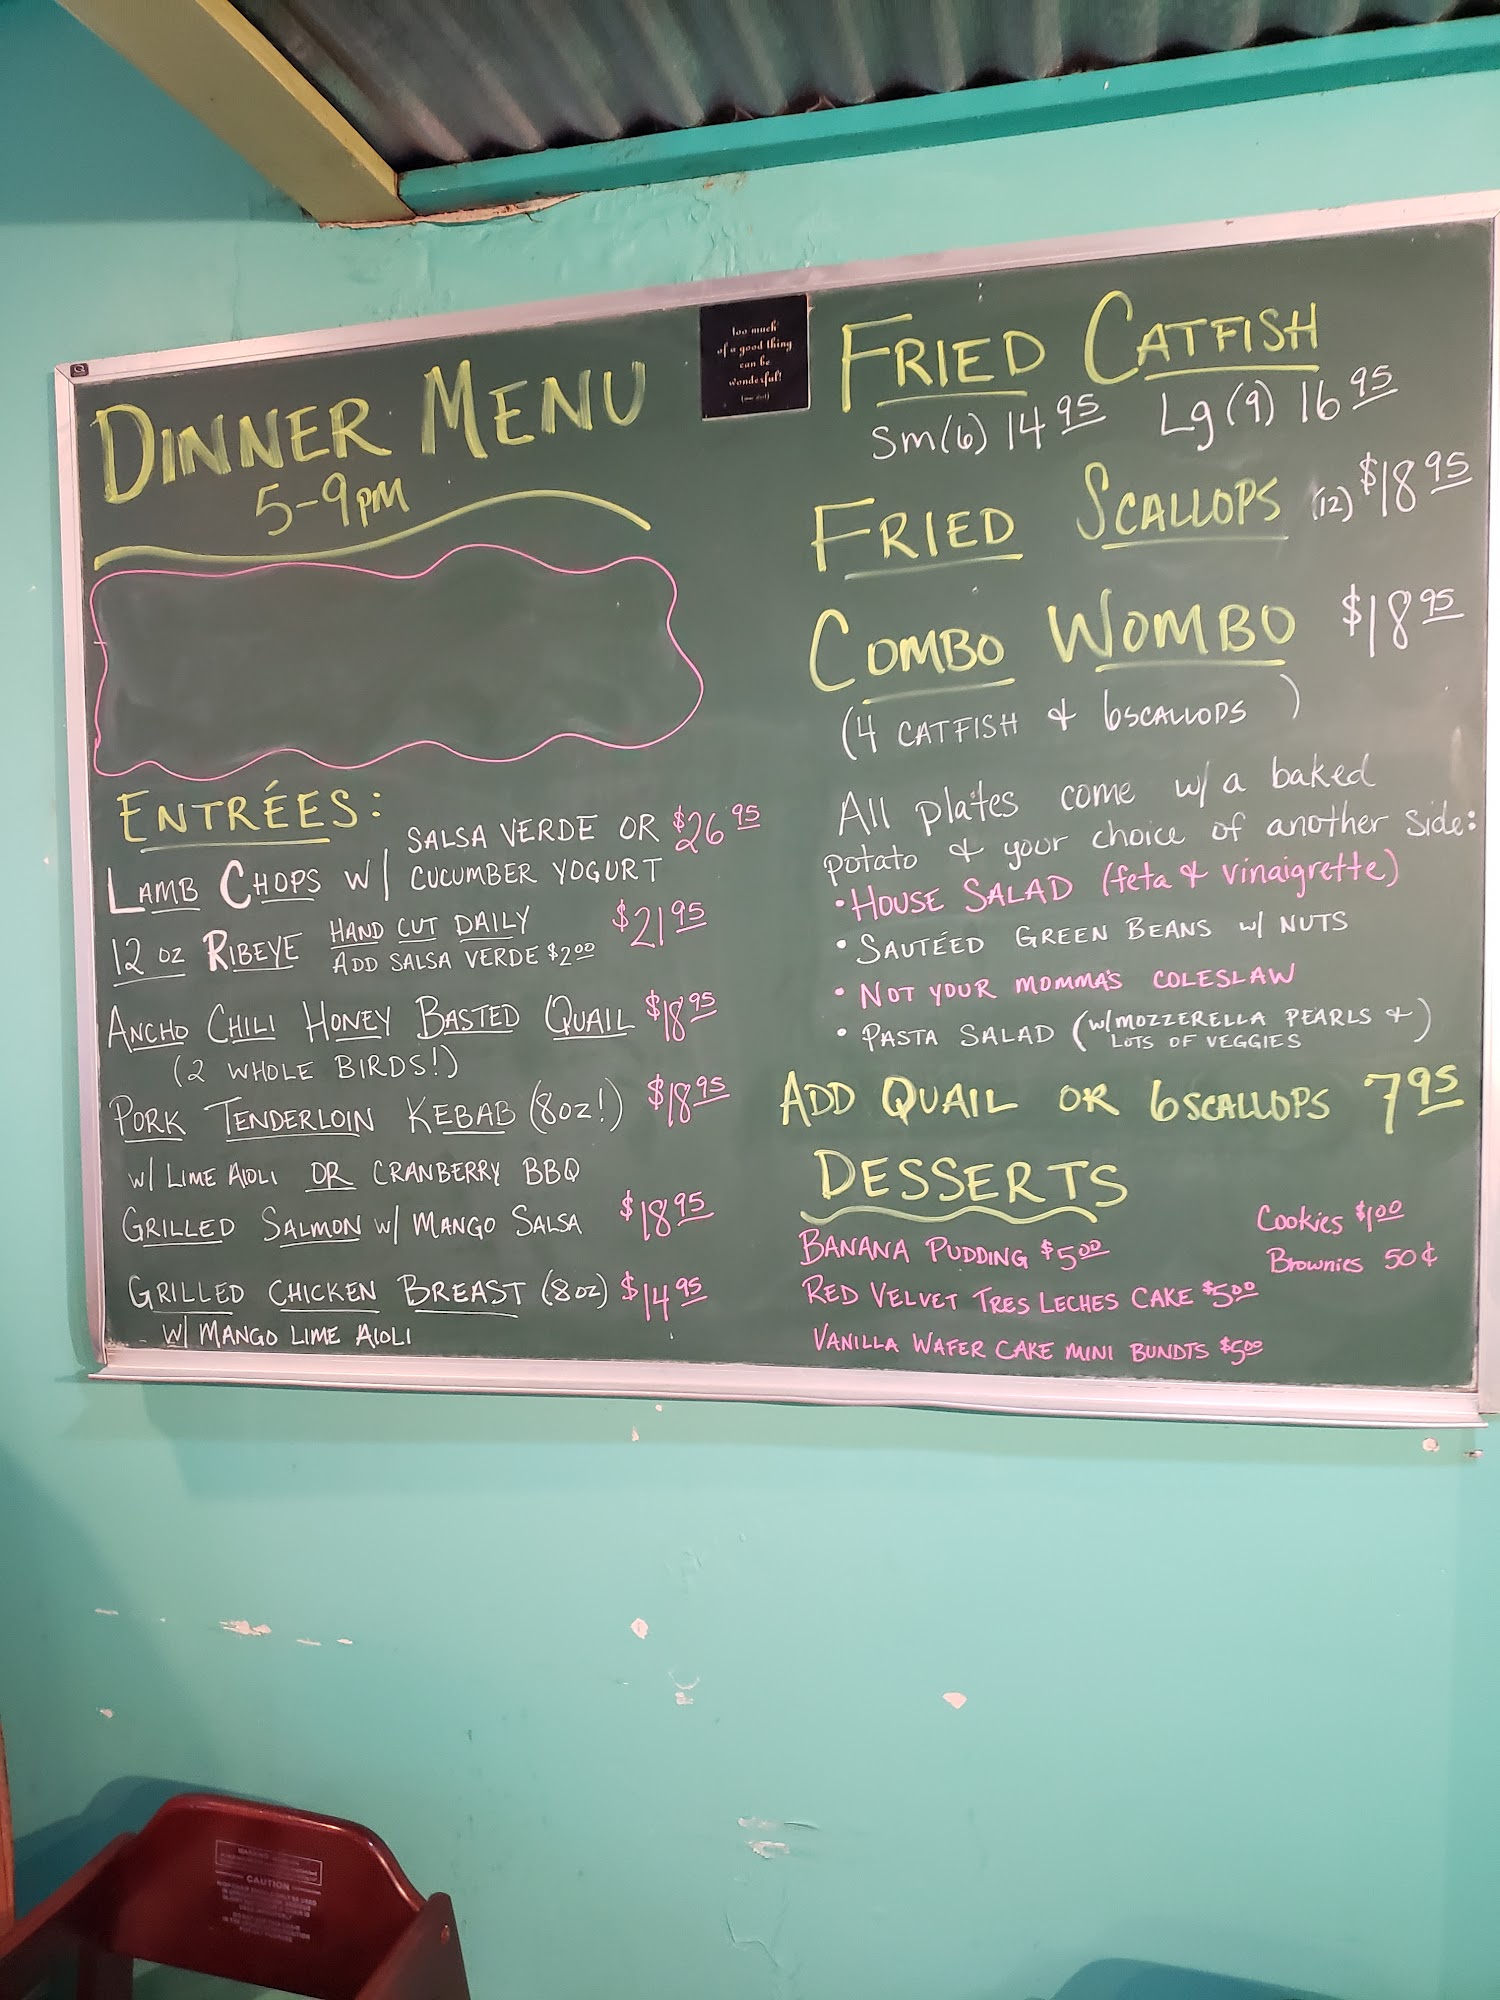 DINNER MENU
5-9PM
ENTRÉES:
LAMB CHOPS W/ SALSA VERDE OR $26 95
CUCUMBER YOGURT
12 OZ RIBEYE HAND CUT DAILY $21 95
ADD SALSA VERDE $2 00
ANCHO CHILI HONEY BASTED QUAIL $18 95
(2 WHOLE BIRDS!)
PORK TENDERLOIN KEBAB (8OZ!) $18 95
W/ LIME AIOLI OR CRANBERRY BBQ
GRILLED SALMON W/ MANGO SALSA $18 95
GRILLED CHICKEN BREAST (8OZ) $14 95
W/ MANGO LIME AIOLI
too much
of a good thing
can be
wonderful!
FRIED CATFISH
Sm(6) 14 95 Lg(9) 16 95
FRIED SCALLOPS (12) $18 95
COMBO WOMBO $18 95
(4 CATFISH & 6 SCALLOPS)
All plates come w/ a baked
potato & your choice of another side:
• HOUSE SALAD (feta & vinaigrette)
• SAUTÉED GREEN BEANS W/ NUTS
• NOT YOUR MOMMA'S COLESLAW
• PASTA SALAD (W/MOZZERELLA PEARLS &
LOTS OF VEGGIES)
ADD QUAIL OR 6 SCALLOPS 7 95
DESSERTS
Cookies $1 00
BANANA PUDDING $5 00
Brownies 50¢
RED VELVET TRES LECHES CAKE $5 00
VANILLA WAFER CAKE MINI BUNDTS $5 00
CAUTION